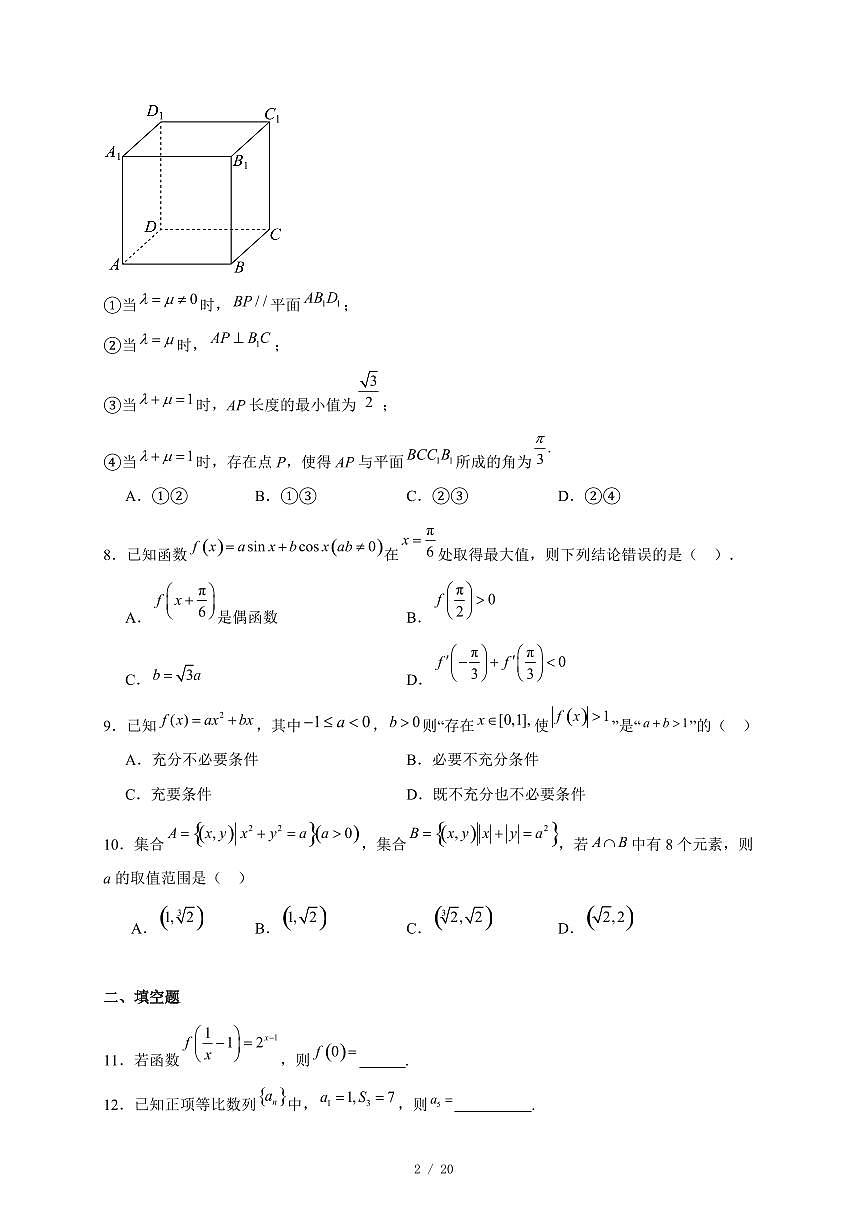 D₁
C₁
A₁
B₁
D
C
A
B
①当 λ = μ ≠ 0 时，BP // 平面 AB₁D₁；
②当 λ = μ 时， AP ⊥ B₁C；
③当 λ + μ = 1 时，AP 长度的最小值为 √3/2；
④当 λ + μ = 1 时，存在点 P，使得 AP 与平面 BCC₁B₁ 所成的角为 π/3.
A．①② B．①③ C．②③ D．②④
8．已知函数 f(x) = a sin x + b cos x (ab ≠ 0) 在 x = π/6 处取得最大值，则下列结论错误的是（ ）.
A．f(x + π/6) 是偶函数 B．f(π/2) > 0
C．b = √3a D．f′(−π/3) + f′(π/3) < 0
9．已知 f(x) = ax² + bx，其中 −1 ≤ a < 0，b > 0 则“存在 x ∈ [0,1], 使 |f(x)| > 1”是“a + b > 1”的（ ）
A．充分不必要条件 B．必要不充分条件
C．充要条件 D．既不充分也不必要条件
10．集合 A = {(x, y)| x² + y² = a}(a > 0)，集合 B = {(x, y)||x| + |y| = a²}，若 A ∩ B 中有 8 个元素，则
a 的取值范围是（ ）
A．(1, ∛2) B．(1, √2) C．(∛2, √2) D．(√2, 2)
二、填空题
11．若函数 f(1/x − 1) = 2ˣ⁻¹，则 f(0) = ______.
12．已知正项等比数列 {aₙ} 中，a₁ = 1, S₃ = 7，则 a₅ = __________.
2 / 20